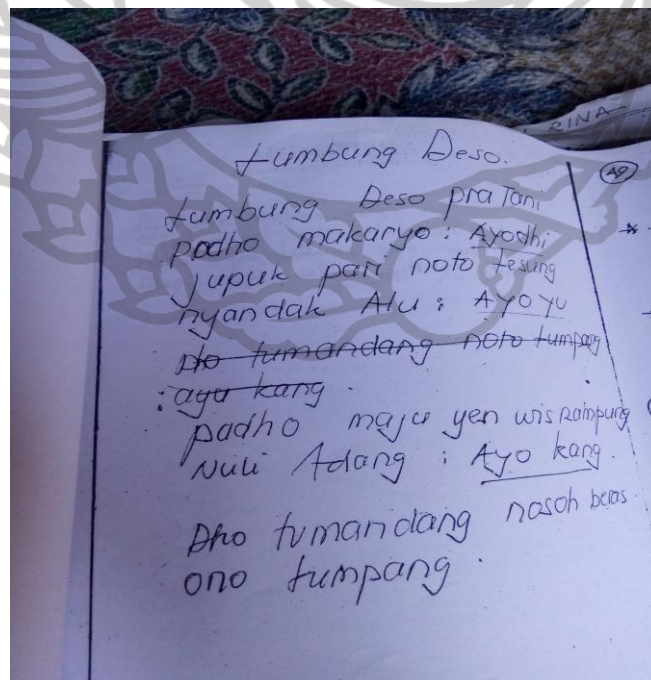 RINA
Lumbung Deso.
A9
Lumbung Deso pra Tani
podho makaryo : Ayodhi
Jupuk pari noto Lesung
nyandak Alu : AYO YU
Dho tumandang noto tumpang
: ayu kang .
padho maju yen wis Rampung
Nuli Adang : Ayo kang .
Dho tumandang nosoh beras
ono tumpang .